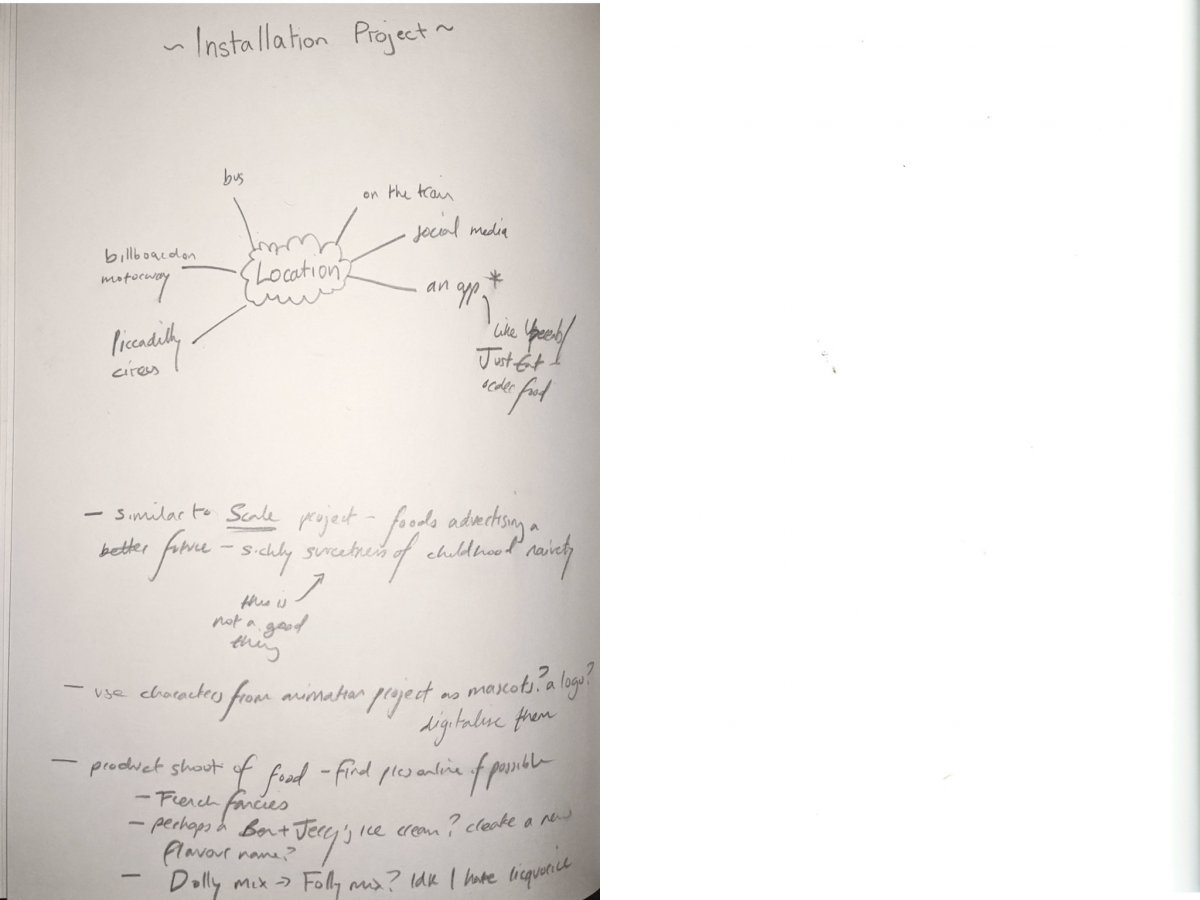 ~ Installation Project ~
bus
on the train
social media
billboard on
motorway
Location
an app *
Piccadilly
circus
like
Just Eat
order food
- similar to Scale project - foods advertising a
better future - sickly sweetness of childhood naivety
this is
not a good
thing
- use characters from animation project as mascots? a logo?
digitalise them
- product shoot of food - find pics online if possible
- French fancies
- perhaps a Ben + Jerry's ice cream? create a new
flavour name?
- Dolly mix → Folly mix? idk I hate licquorice